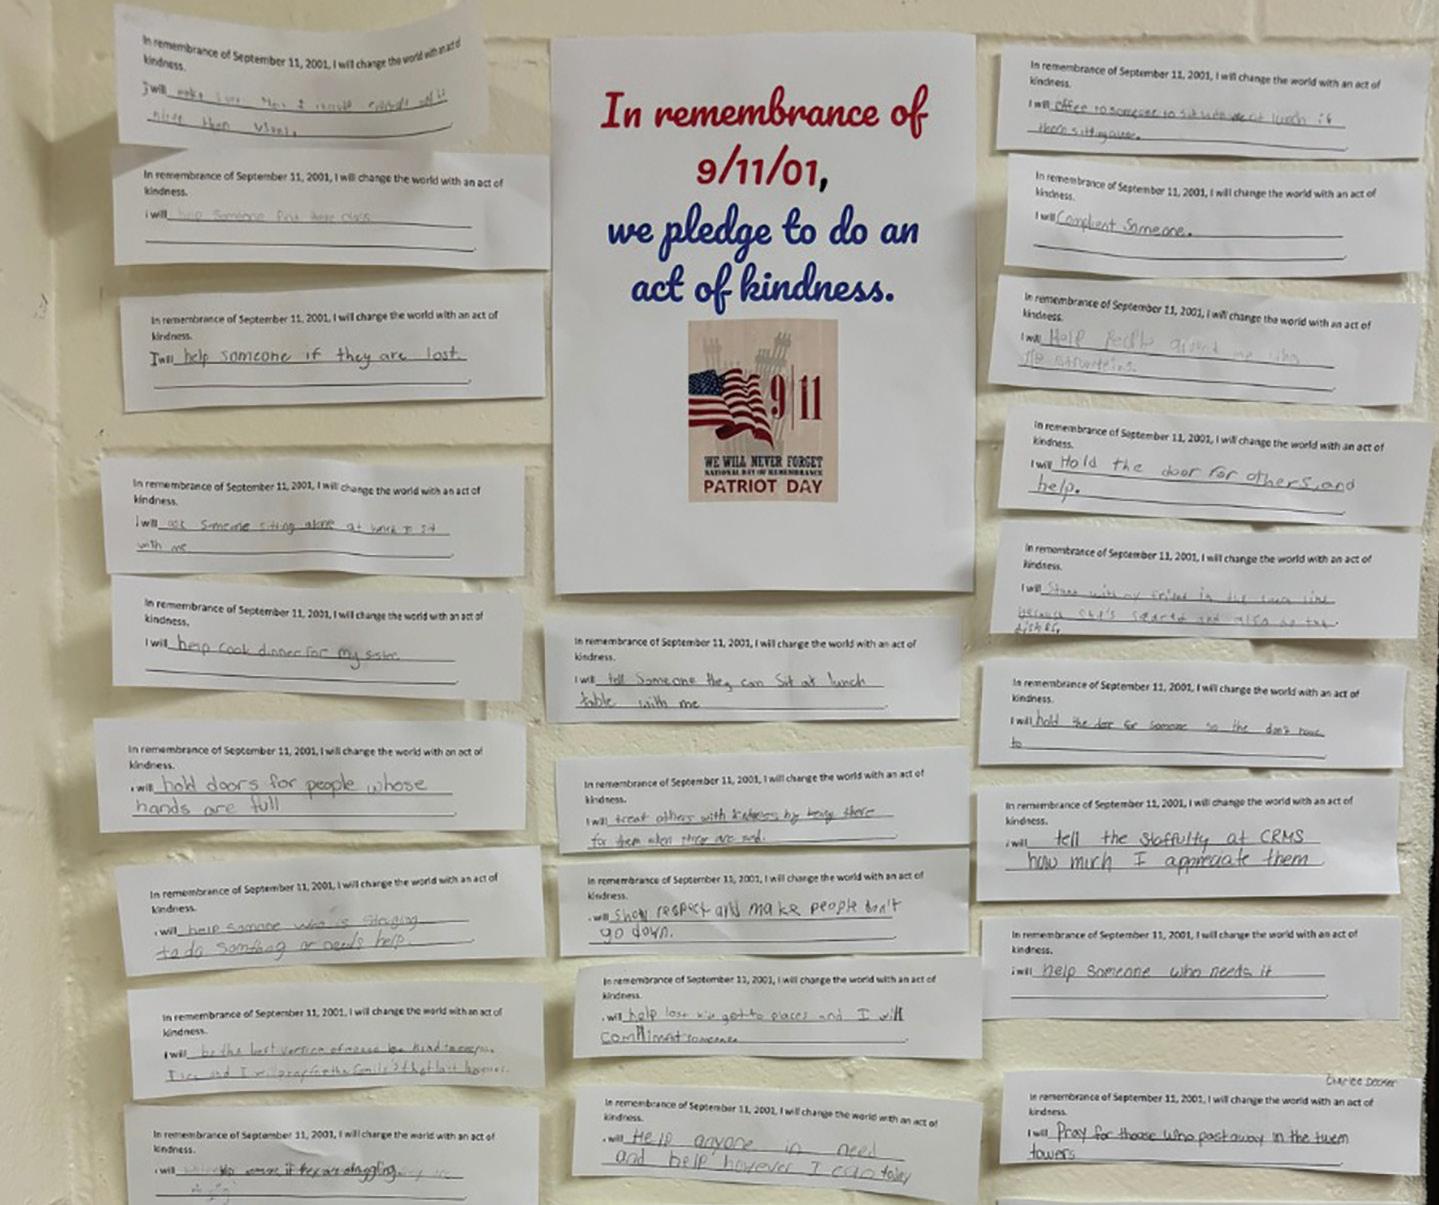 In remembrance of September 11, 2001, I will change the world with an act of
kindness.
I will make sure that I
nicer than usual.
In remembrance of September 11, 2001, I will change the world with an act of
kindness.
i will help someone find there class
In remembrance of September 11, 2001, I will change the world with an act of
kindness.
I will help someone if they are lost
In remembrance of September 11, 2001, I will change the world with an act of
kindness.
i will ask someone sitting alone at lunch to sit
with me
In remembrance of September 11, 2001, I will change the world with an act of
kindness.
I will help cook dinner for my sister
In remembrance of September 11, 2001, I will change the world with an act of
kindness.
i will hold doors for people whose
hands are full
In remembrance of September 11, 2001, I will change the world with an act of
kindness.
i will help somone who is
to do something or needs help.
In remembrance of September 11, 2001, I will change the world with an act of
kindness.
I will be the best version of
I see and I will pray for the
In remembrance of September 11, 2001, I will change the world with an act of
kindness.
i will if they are struggling
In remembrance of
9/11/01,
we pledge to do an
act of kindness.
9|11
WE WILL NEVER FORGET
NATIONAL DAY OF REMEMBRANCE
PATRIOT DAY
In remembrance of September 11, 2001, I will change the world with an act of
kindness.
I will tell someone they can sit at lunch
table with me
In remembrance of September 11, 2001, I will change the world with an act of
kindness.
I will treat others with kindness by being there
for them when they are sad.
In remembrance of September 11, 2001, I will change the world with an act of
kindness.
i will show respect and make people don't
go down.
In remembrance of September 11, 2001, I will change the world with an act of
kindness.
i will help lost get to places and I will
compliment someone
In remembrance of September 11, 2001, I will change the world with an act of
kindness.
i will Help anyone in need
and help however I can today
In remembrance of September 11, 2001, I will change the world with an act of
kindness.
I will offer to someone to sit with me at lunch if
there sitting alone.
In remembrance of September 11, 2001, I will change the world with an act of
kindness.
I will Complient Someone.
In remembrance of September 11, 2001, I will change the world with an act of
kindness.
I will Help people around me who
In remembrance of September 11, 2001, I will change the world with an act of
kindness.
I will Hold the door for others, and
help.
In remembrance of September 11, 2001, I will change the world with an act of
kindness.
I will Stand with my friend in the lunch line
because she's scared and also do the
dishes.
In remembrance of September 11, 2001, I will change the world with an act of
kindness.
I will hold the door for someone so the don't have
to
In remembrance of September 11, 2001, I will change the world with an act of
kindness.
i will tell the staffulty at CRMS
how much I appreciate them
In remembrance of September 11, 2001, I will change the world with an act of
kindness.
i will help someone who needs it
In remembrance of September 11, 2001, I will change the world with an act of
kindness.
I will Pray for those who past away in the twem
towers